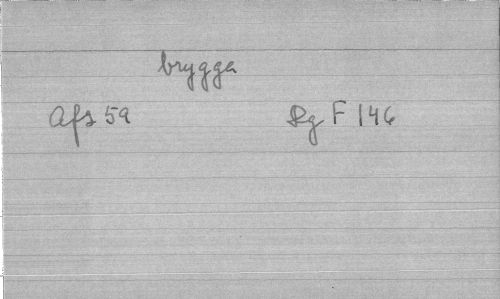 brygga
Afs 59 Rg F 146